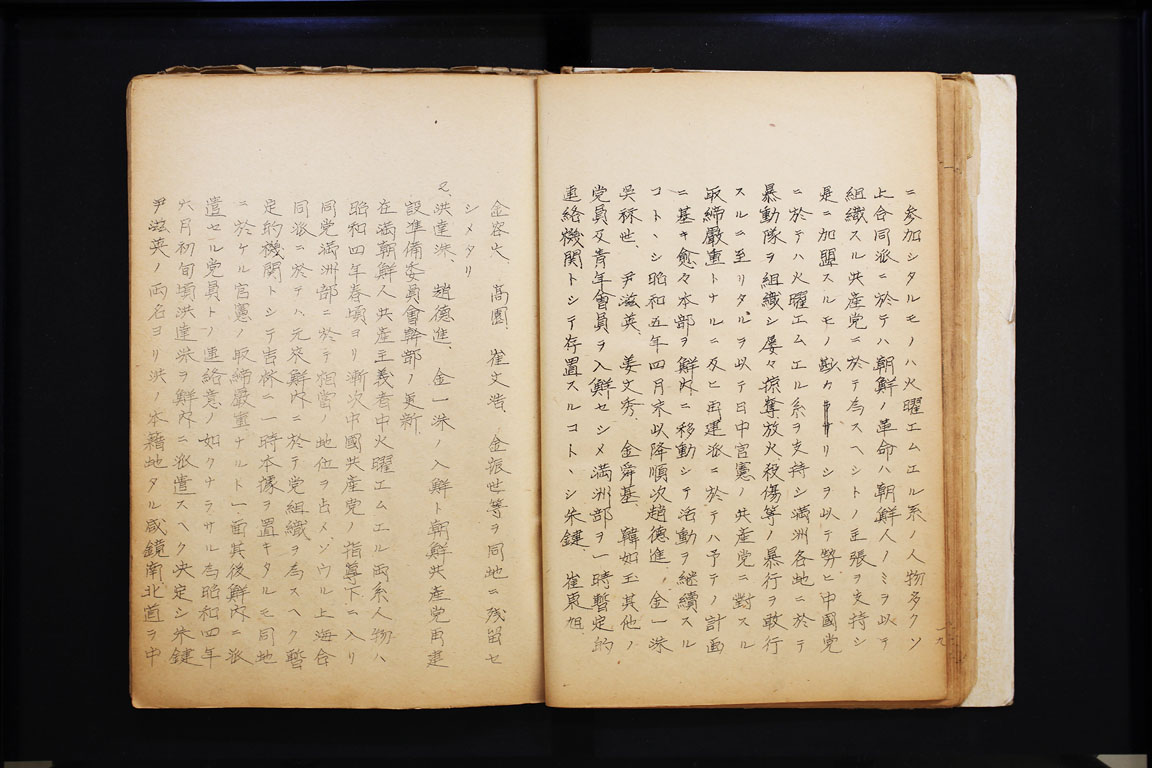 ニ参加シタルモノハ火曜エムエル系ノ人物多クソ
上合同派ニ於テハ朝鮮ノ革命ハ朝鮮人ノミヲ以テ
組織スル共産党ニ於テ為スヘシトノ主張ヲ支持シ
是ニ加盟スルモノ尠カリシヲ以テ勢ヒ中國党
ニ於テハ火曜エムエル系ヲ支持シ満洲各地ニ於テ
暴動隊ヲ組織シ屡々掠奪放火殺傷等ノ暴行ヲ敢行
スルニ至リタルヲ以テ日中官憲ノ共産党ニ對スル
取締嚴重トナルニ及ヒ再建派ニ於テハ予テノ計画
ニ基キ愈々本部ヲ鮮内ニ移動シテ活動ヲ継續スル
コトヽシ昭和五年四月末以降順次趙德進、金一洙
吳秾世、尹滋英、姜文秀、金舜基、韓如玉其他ノ
党員及青年會員ヲ入鮮セシメ満洲部ヲ一時暫定的
連絡機関トシテ存置スルコトヽシ朱鍵、崔東旭、
金容火、高園、崔文浩、金振世等ヲ同地ニ残留セ
シメタリ
又、洪達洙、趙德進、金一洙ノ入鮮ト朝鮮共産党再建
設準備委員會幹部ノ更新
在満朝鮮人共産主義者中火曜エムエル両系人物ハ
昭和四年春頃ヨリ漸次中國共産党ノ指導下ニ入リ
同党満洲部ニ於テ相當ノ地位ヲ占メソウル上海合
同派ニ於テハ元來鮮内ニ於テ党組織ヲ為スヘク暫
定的機関トシテ吉林ニ一時本據ヲ置キタルモ同地
ニ於ケル官憲ノ取締嚴重ナルト一面其後鮮内ニ派
遣セル党員トノ連絡意ノ如クナラサル為昭和四年
六月初旬頃洪達洙ヲ鮮内ニ派遣スヘク決定シ朱鍵
尹滋英ノ両名ヨリ洪ノ本籍地タル咸鏡南北道ヲ中
一九